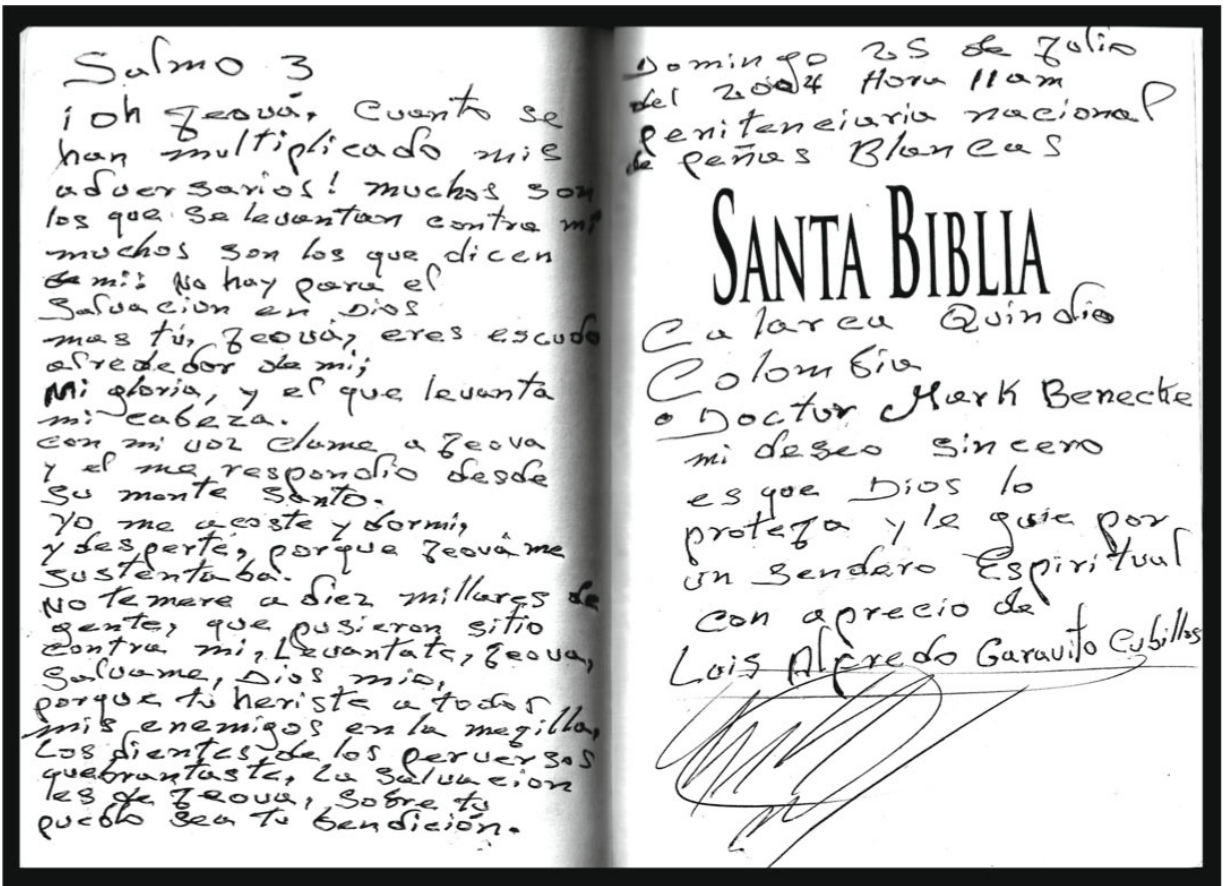 Salmo 3
¡Oh Jeová, Cuanto se
han multiplicado mis
adversarios! muchos son
los que se levantan contra mi
muchos son los que dicen
de mi: No hay para el
Salvacion en Dios
mas tú, Jeová, eres escudo
alrededor de mi;
Mi gloria, y el que levanta
mi cabeza.
con mi voz clame a Jeova
y el me respondio desde
su monte Santo.
Yo me acoste y dormi,
y desperté, porque Jeová me
sustentaba.
No temere a diez millares de
gente, que pusieron sitio
contra mi, Levantate, Jeova,
Salvame, Dios mio,
porque tú heriste a todos
mis enemigos en la megilla,
Los dientes de los perversos
quebrantaste, La Salvacion
es de Jeova, Sobre tu
pueblo sea tu bendición.
Domingo 25 de Julio
del 2004 Hora 11am
penitenciaria nacional
de peñas Blancas
SANTA BIBLIA
Calarca Quindio
Colombia
Doctor Mark Benecke
mi deseo sincero
es que Dios lo
proteja y le guie por
un sendero Espiritual
con aprecio de
Luis Alfredo Garavito Cubillos